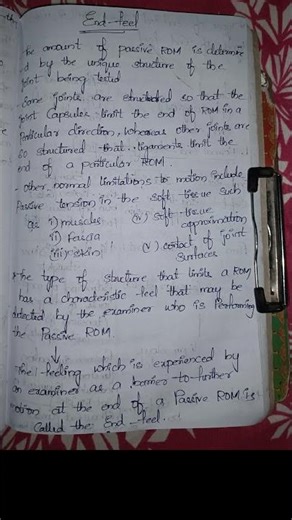 End-feel
The amount of passive ROM is determin
ed by the unique structure of the
joint being tested
- Some joints are structured so that the
joint capsules limit the end of ROM in a
particular direction, whereas other joints are
so structured that ligaments limit the
end of a particular ROM.
- Other normal limitations to motion include
Passive tension in the soft tissue such
as i) muscles (iv) soft-tissue
approximation
ii) fascia
(iii) skin (v) contact of joint
surfaces
The type of structure that limits a ROM
has a characteristic feel that may be
detected by the examiner who is performing
the Passive ROM.
The feeling which is experienced by
an examiner as a barrier to further
motion at the end of a Passive ROM is
called the End-feel.